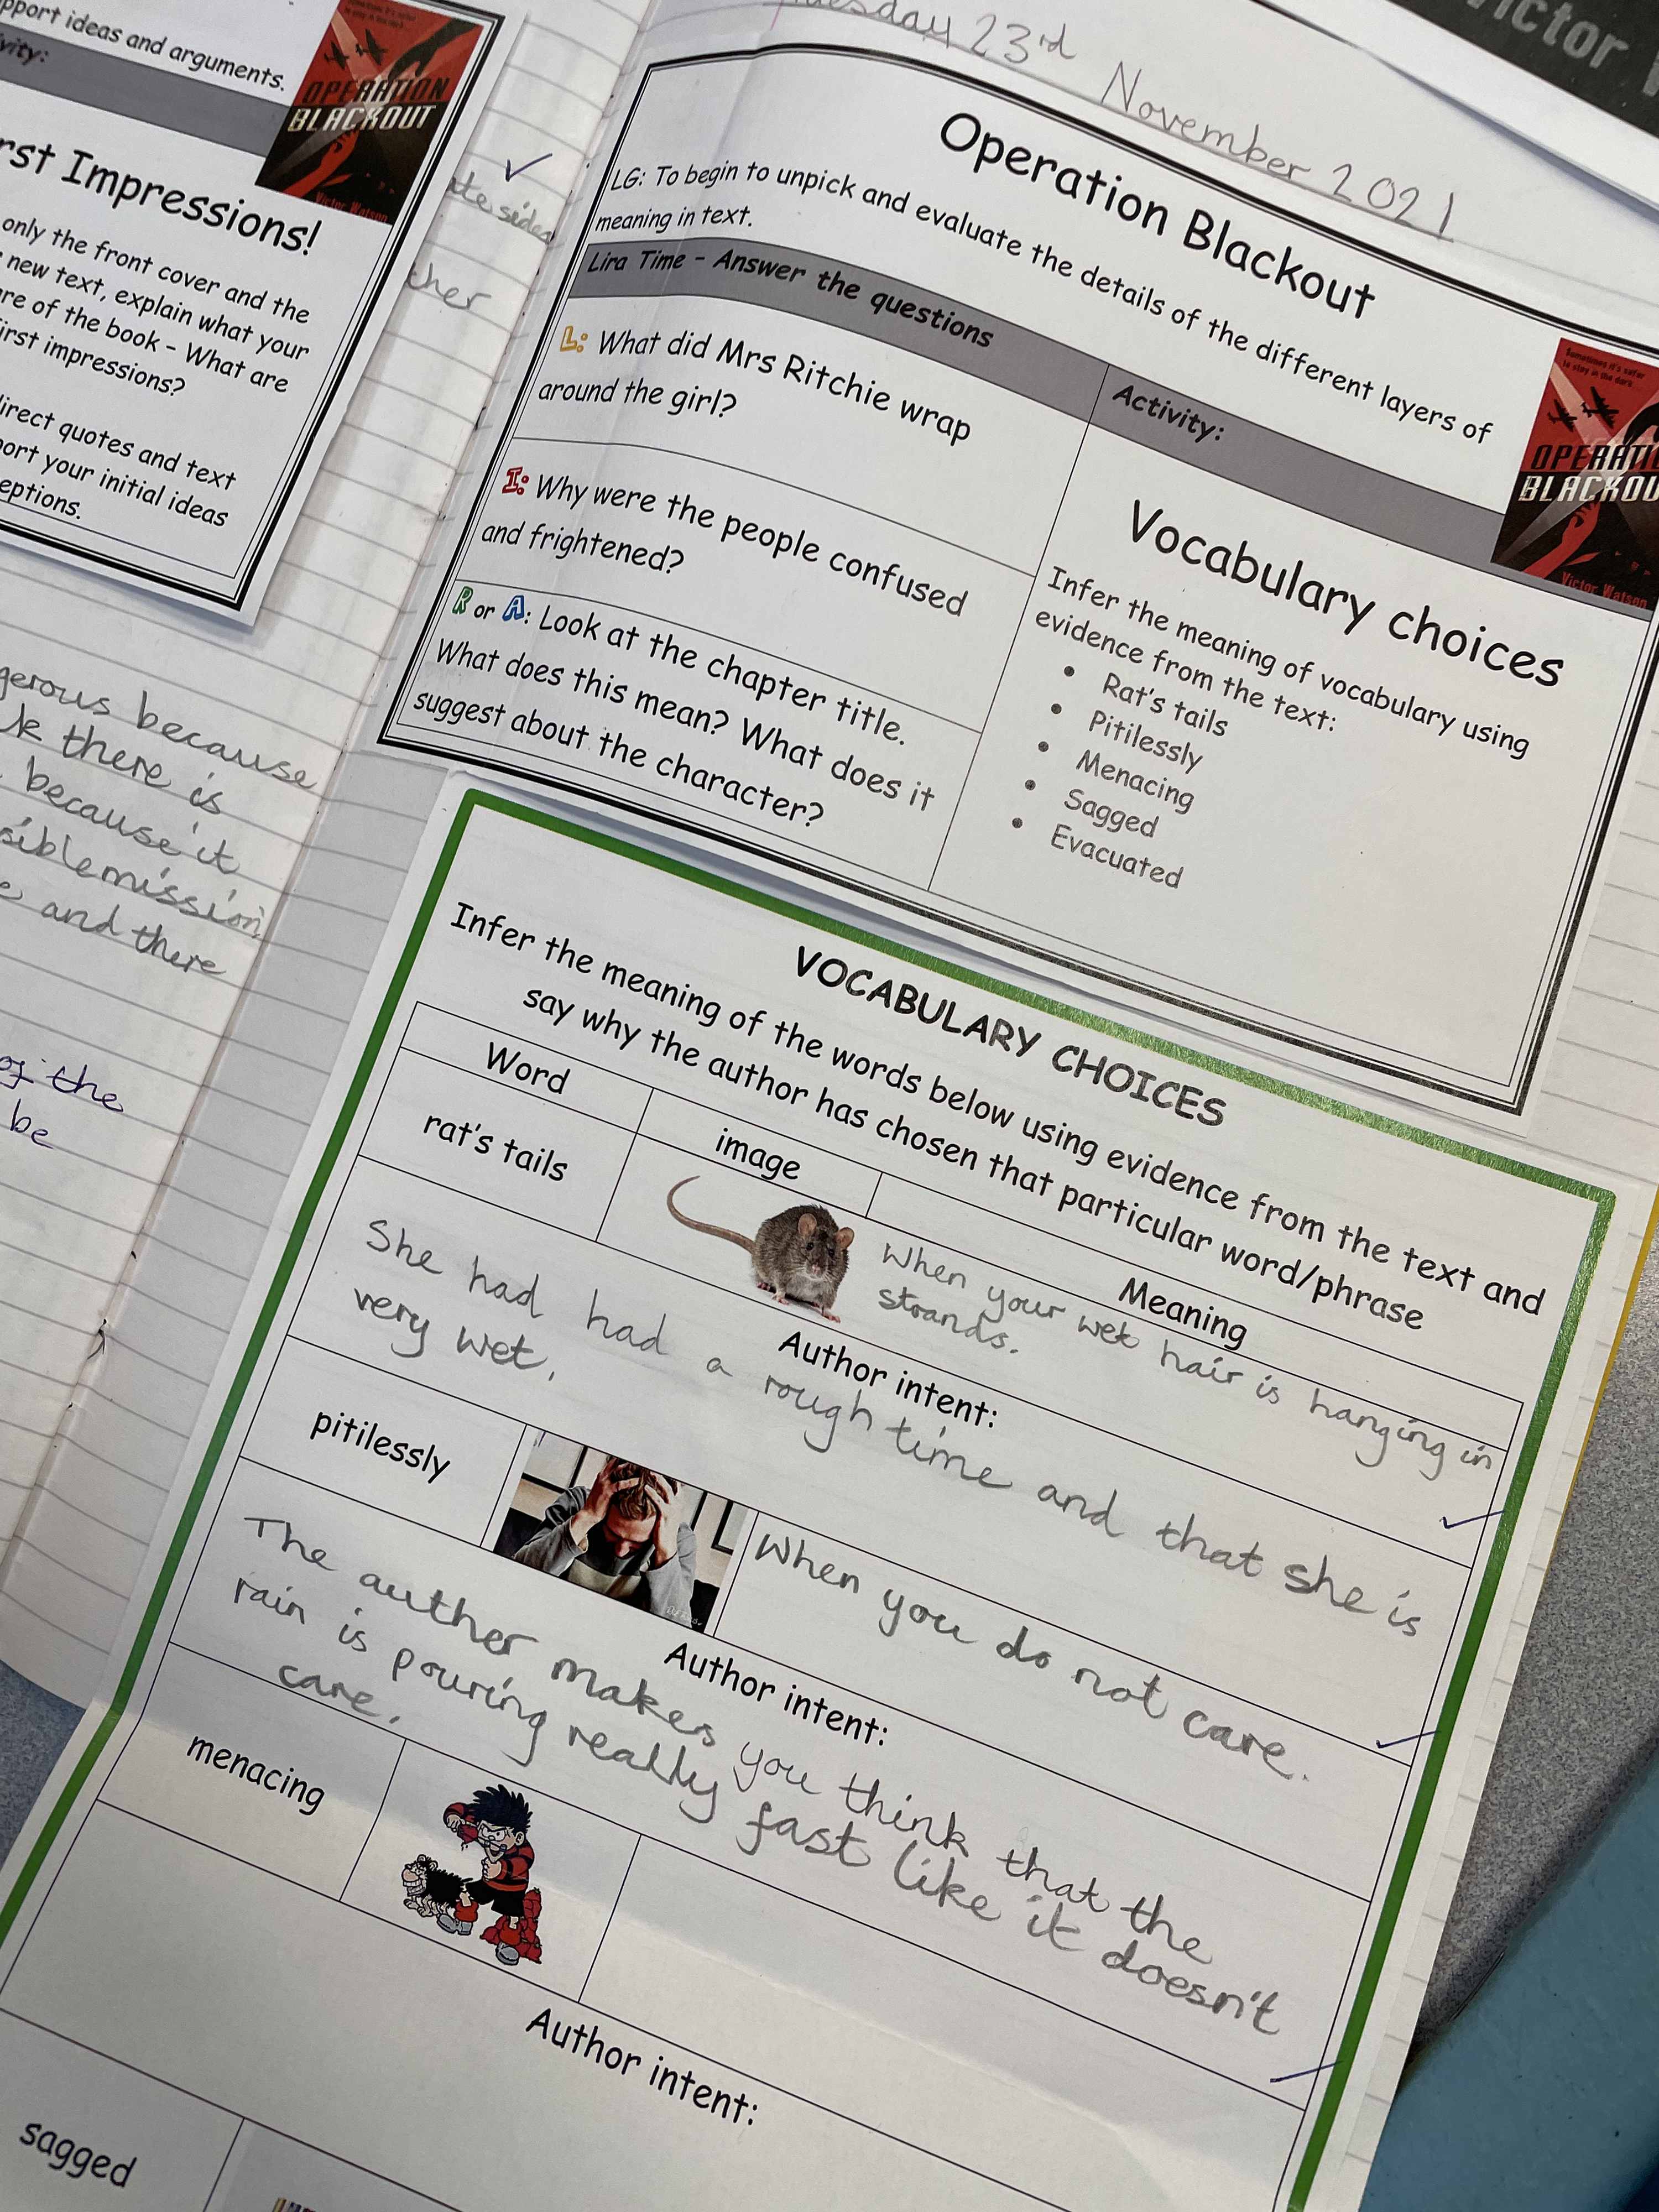 pport ideas and arguments.
vity:
OPERATION
BLACKOUT
Victor Watson
rst Impressions!
only the front cover and the
new text, explain what your
re of the book - What are
irst impressions?
direct quotes and text
port your initial ideas
eptions.
gerous because
k there is
because it
siblemission
e and there
of the
be
ther
esday 23rd November 2021
ictor
Operation Blackout
LG: To begin to unpick and evaluate the details of the different layers of
meaning in text.
Lira Time - Answer the questions
L: What did Mrs Ritchie wrap
around the girl?
I: Why were the people confused
and frightened?
R or A: Look at the chapter title.
What does this mean? What does it
suggest about the character?
Activity:
Sometimes it's safer
to stay in the dark
OPERATIO
BLACKOU
Victor Watson
Vocabulary choices
Infer the meaning of vocabulary using
evidence from the text:
• Rat's tails
• Pitilessly
• Menacing
• Sagged
• Evacuated
VOCABULARY CHOICES
Infer the meaning of the words below using evidence from the text and
say why the author has chosen that particular word/phrase
Word
image
Meaning
rat's tails
When your wet hair is hanging in
strands.
Author intent:
She had had a rough time and that she is
very wet.
pitilessly
When you do not care.
Author intent:
The auther makes you think that the
rain is pouring really fast like it doesn't
care.
menacing
Author intent:
sagged